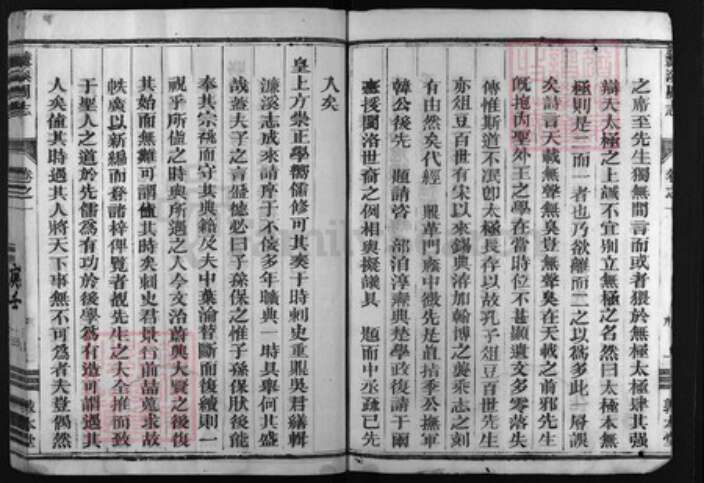 之齋至先生獨無間言而或者猥於無極太極肆其强
辯夫太極之上誠不宜別立無極之名然曰太極本無
極則是二而一者也乃欲離而二之以爲多此一層誤
矣詩言天載無聲無臭豈無聲臭在天載之前邪先生
旣抱內聖外王之學在當時位不甚顯遺文多零落失
傳惟斯道不泯卽太極長存以故孔子俎豆百世先生
亦俎豆百世有宋以來錫典洊加翰博之襲乘志之刻
有由然矣代經 鼎革門廕中微先是直指季公撫軍
韓公後先 題請咨 部泊淳燾典楚學政復請于爾
臺援閩洛世裔之例相與擬議具 題而中丞疏已先
入矣
皇上方崇正學嚮儒修可其奏于時刺史重熙吳君繕輯
濂溪志成來請序于不佞多年曠典一時具舉何其盛
哉蓋夫子之言盛德必曰子孫保之惟子孫保肰後能
奉其宗祧而守其典籍及夫中葉淪替斷而復續則一
視乎所値之時與所遇之人今文治蔚興大賢之後復
其始而無難可謂値其時矣刺史君景行前喆蒐求故
帙廣以新編而登諸梓俾覽者覩先生之大全推而致
于聖人之道於先儒爲有功於後學爲有造可謂遇其
人矣値其時遇其人將天下事無不可爲者夫豈偶然
濂溪周志
卷之一
敦本堂